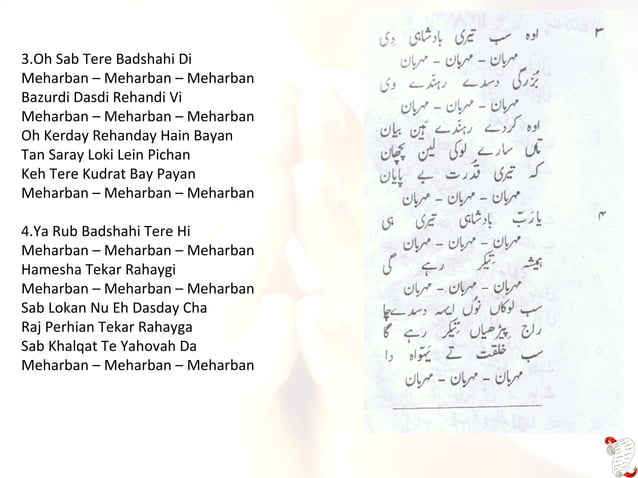 3.Oh Sab Tere Badshahi Di
Meharban – Meharban – Meharban
Bazurdi Dasdi Rehandi Vi
Meharban – Meharban – Meharban
Oh Kerday Rehanday Hain Bayan
Tan Saray Loki Lein Pichan
Keh Tere Kudrat Bay Payan
Meharban – Meharban – Meharban
4.Ya Rub Badshahi Tere Hi
Meharban – Meharban – Meharban
Hamesha Tekar Rahaygi
Meharban – Meharban – Meharban
Sab Lokan Nu Eh Dasday Cha
Raj Perhian Tekar Rahayga
Sab Khalqat Te Yahovah Da
Meharban – Meharban – Meharban
۳ اوہ سب تیری بادشاہی دِی
مہربان – مہربان – مہربان
بُزرگی دسدے رہندے وی
مہربان – مہربان – مہربان
اوہ کردے رہندے ہَین بیان
تاں سارے لوکی لین پچھان
کہ تیری قُدرت بے پایان
مہربان – مہربان – مہربان
۴ یا ربّ بادشاہی تیری ہی
مہربان – مہربان – مہربان
ہمیشہ تِیکر رہے گی
مہربان – مہربان – مہربان
سب لوکاں نوُں ایہہ دسدے چا
راج پِیڑھیاں تِیکر رہے گا
سب خلقت تے یہوّاہ دا
مہربان – مہربان – مہربان